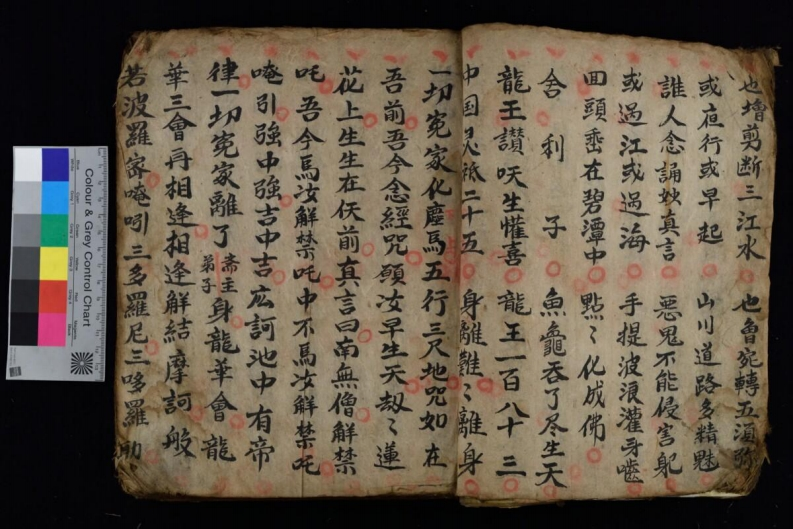 也增剪断三江水 也魯宛轉五湏弥
或夜行或早起 山川道路多精魅
誰人念誦妙真言 惡鬼不能侵害躬
或過江或過海 手提波浪灌身
回頭在碧潭中 點〻化成佛
舍利子 魚龜吞了尽生天
龍王讃 天生懽喜 龍王一百八十三
中国 祇二十五 身離難〻離身
一切寃家化塵 五行三尺地咒如在
吾前吾今念經咒願汝早生天刼〻蓮
花上生生在仸前真言曰南無僧解禁
吒吾今為汝解禁吒中不為汝解禁吒
唵引強中強吉中吉広訶池中有帝
律一切寃家離了斎主弟子身龍華會龍
華三會再相逢相逢解結摩訶般
若波羅宻唵吽三多羅尼三哆羅
Colour & Grey Control Chart
Blue
Cyan
Green
Yellow
Red
Magenta
White
Grey
Black